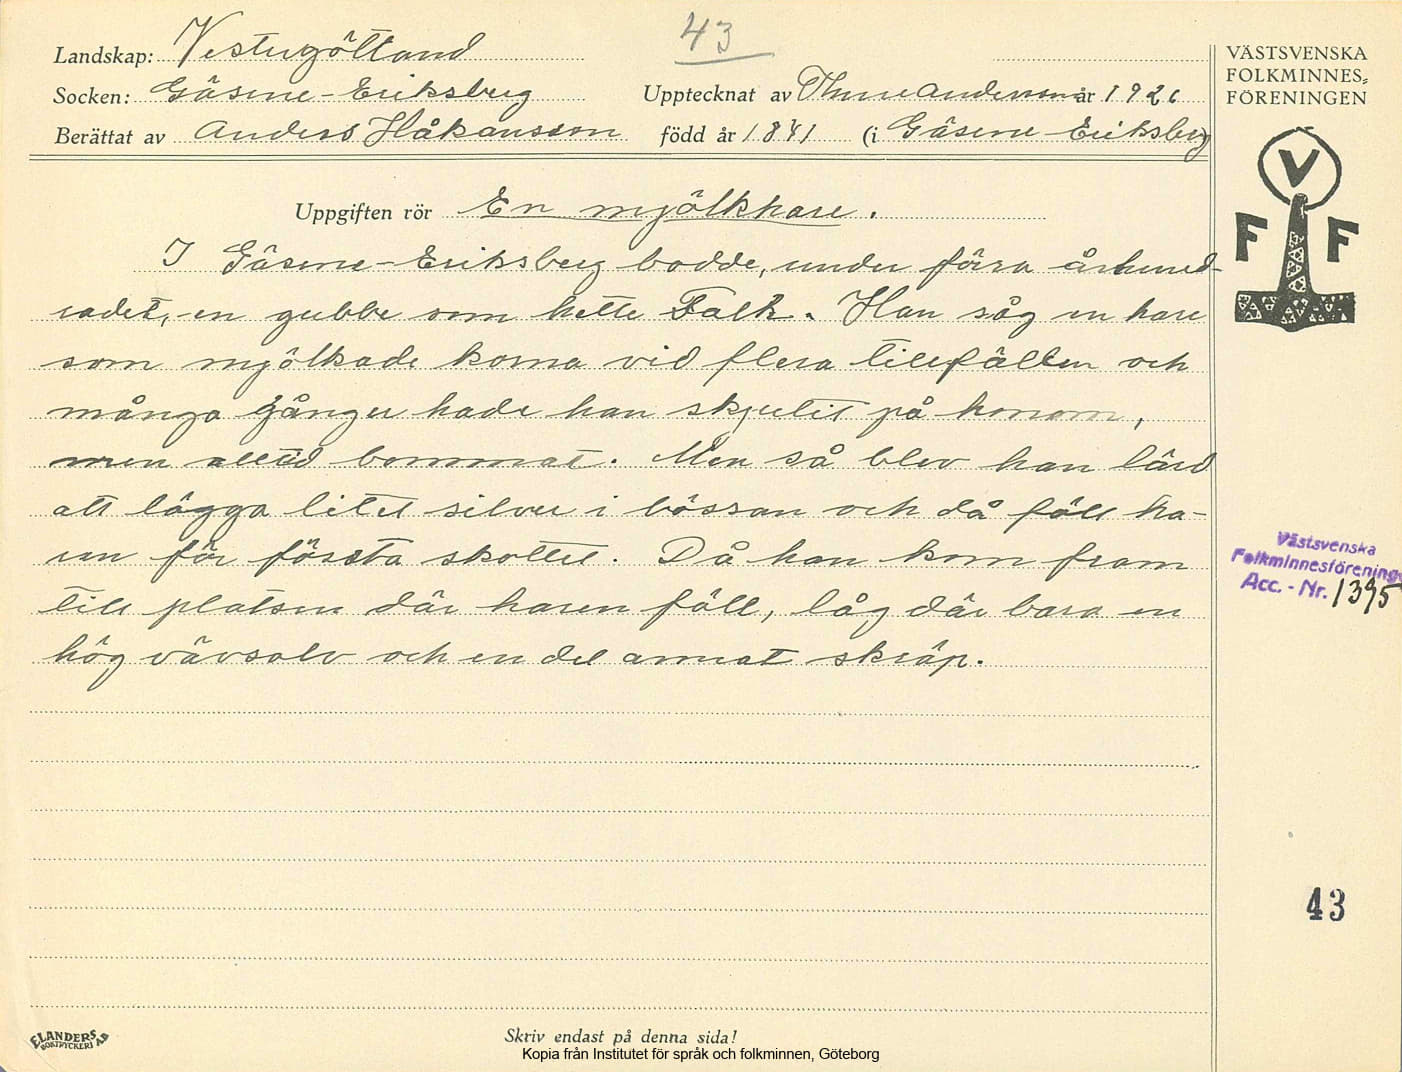 43
Landskap: Vestergötland
Socken: Gäsene-Eriksberg
Upptecknat av Thure Andersson år 1926
Berättat av Anders Håkansson född år 1841 (i Gäsene-Eriksberg
VÄSTSVENSKA
FOLKMINNES=
FÖRENINGEN
V
F F
Uppgiften rör En mjölkhare.
I Gäsene-Eriksberg bodde, under förra århund-
radet, en gubbe som hette Falk. Han såg en hare
som mjölkade korna vid flera tillfällen och
många gånger hade han skjutit på honom,
men alltid bommat. Men så blev han lärd
att lägga litet silver i bössan och då föll ha-
ren för första skottet. Då han kom fram
till platsen där haren föll, låg där bara en
hög vävsolv och en del annat skräp.
Västsvenska
Folkminnesförening
Acc. - Nr. 1395
43
ELANDERS
BOKTRYCKERI AB
Skriv endast på denna sida!
Kopia från Institutet för språk och folkminnen, Göteborg